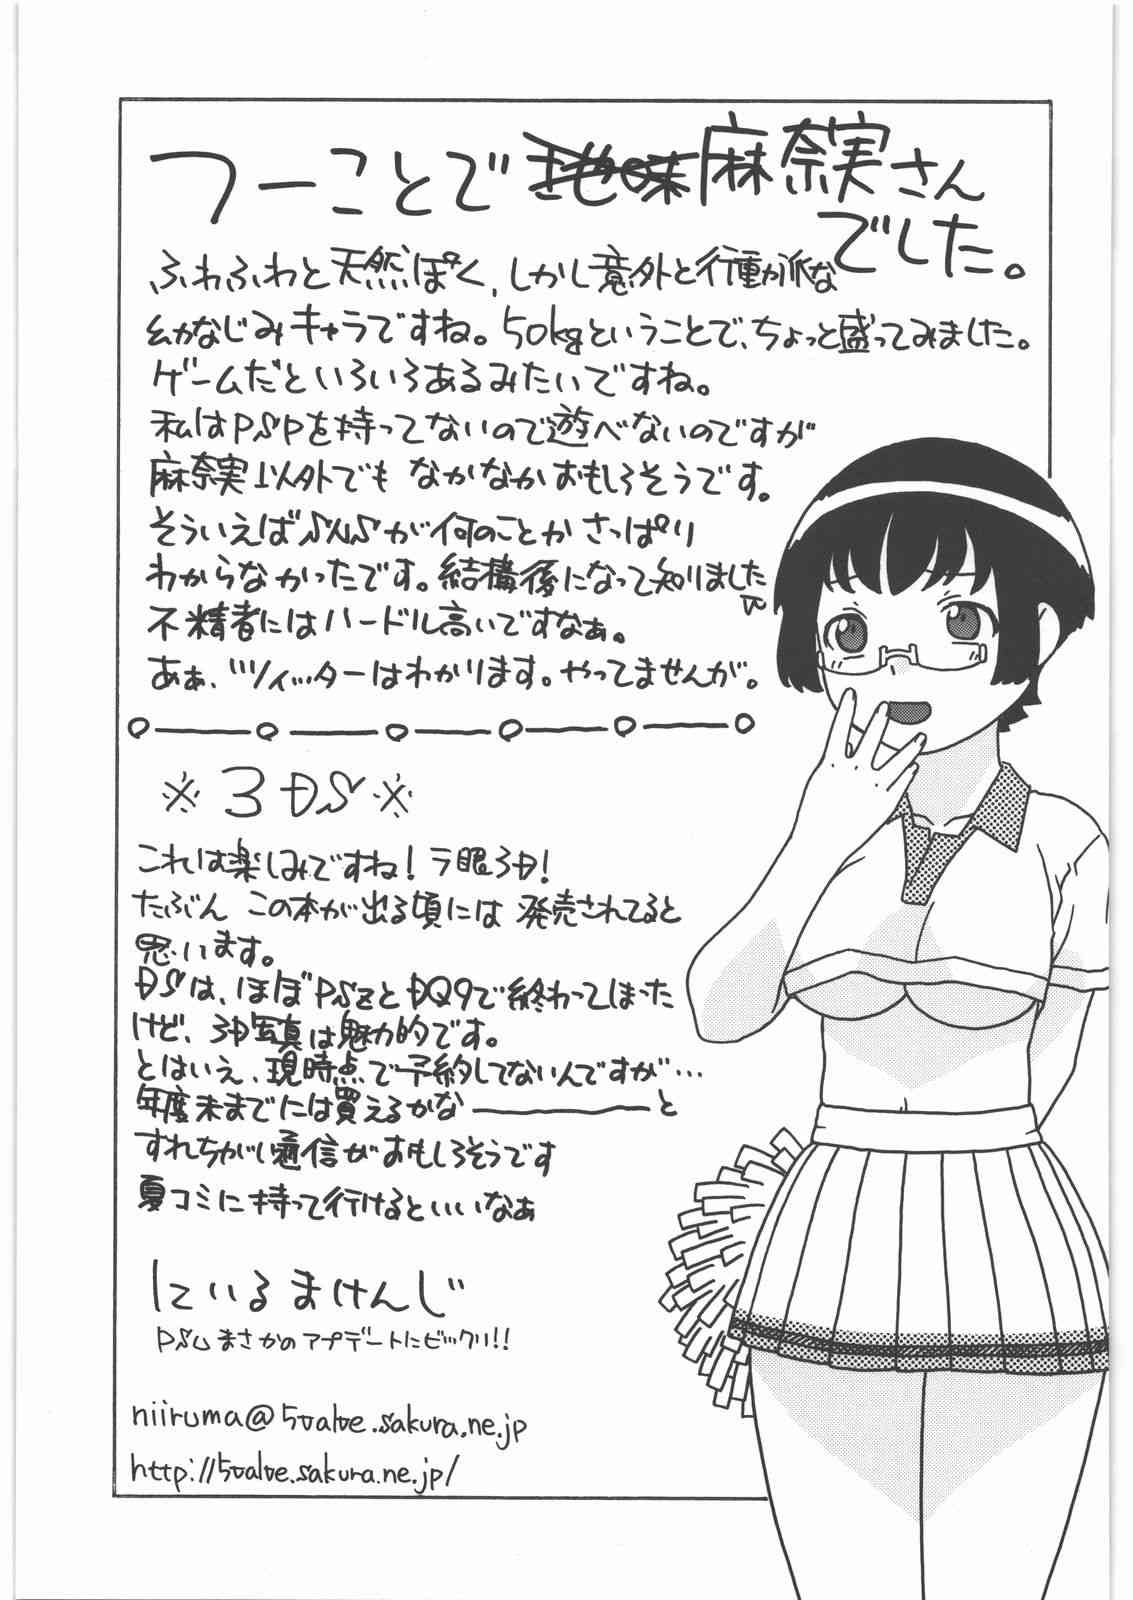 つーことで地味麻奈実さん
でした。
ふわふわと天然ぽく、しかし意外と行動力派な
幼なじみキャラですね。50kgということで、ちょっと盛ってみました。
ゲームだといろいろあるみたいですね。
私はPSPを持ってないので遊べないのですが
麻奈実以外でもなかなかおもしろそうです。
そういえばSNSが何のことかさっぱり
わからなかったです。結構後になって知りました
不精者にはハードル高いですなぁ。
あぁ、ツイッターはわかります。やってませんが。
※3DS※
これは楽しみですね!ラ眼3D!
たぶんこの本が出る頃には発売されてると
思います。
DSは、ほぼPSZとDQ9で終わってしまった
けど、3D写真は魅力的です。
とはいえ、現時点で予約してないんですが…
年度末までには買えるかな――――と
すれちがい通信がおもしろそうです
夏コミに持って行けるといいなぁ
にいるまけんじ
PSUまさかのアプデートにビックリ!!
niiruma@5value.sakura.ne.jp
http://5value.sakura.ne.jp/